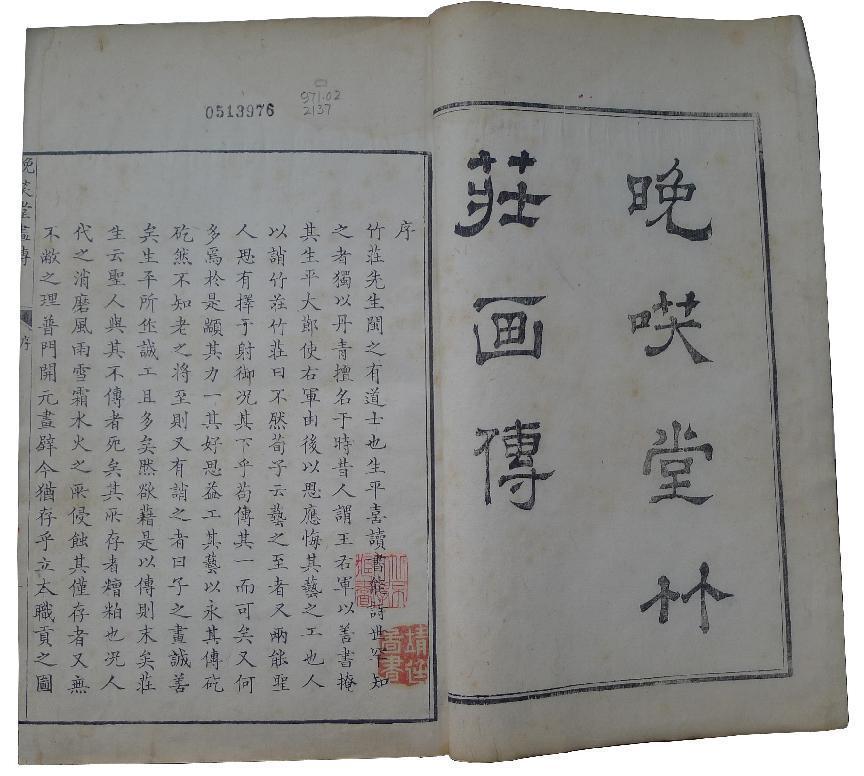 晚唉堂竹
莊画傳
0513976
971.02
2137
序
竹莊先生閩之有道士也生平喜讀書能詩世罕知
之者獨以丹青擅名于時昔人謂王右軍以善書掩
其生平大鄭使右軍由後以思應悔其藝之工也人
以誚竹莊竹莊曰不然荀子云藝之至者又兩能聖
人恩有擇于射御况其下乎苟傳其一而可矣又何
多爲於是顓其力一其好思益工其藝以永其傳矻
矻然不知老之將至則又有誚之者曰子之畫誠善
矣生平所作誠工且多矣然欲藉是以傳則末矣莊
生云聖人與其不傳者死矣其所存者糟粕也况人
代之消磨風雨雪霜水火之所侵蝕其僅存者又無
不敝之理普門開元畫壁今猶存乎立本職貢之圖
晚唉堂畫傳
序